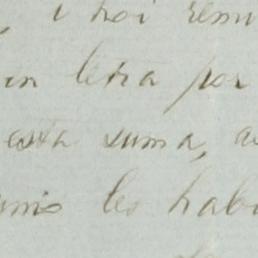 i hoi remi
in letra por
esta suma, a
unis les habi